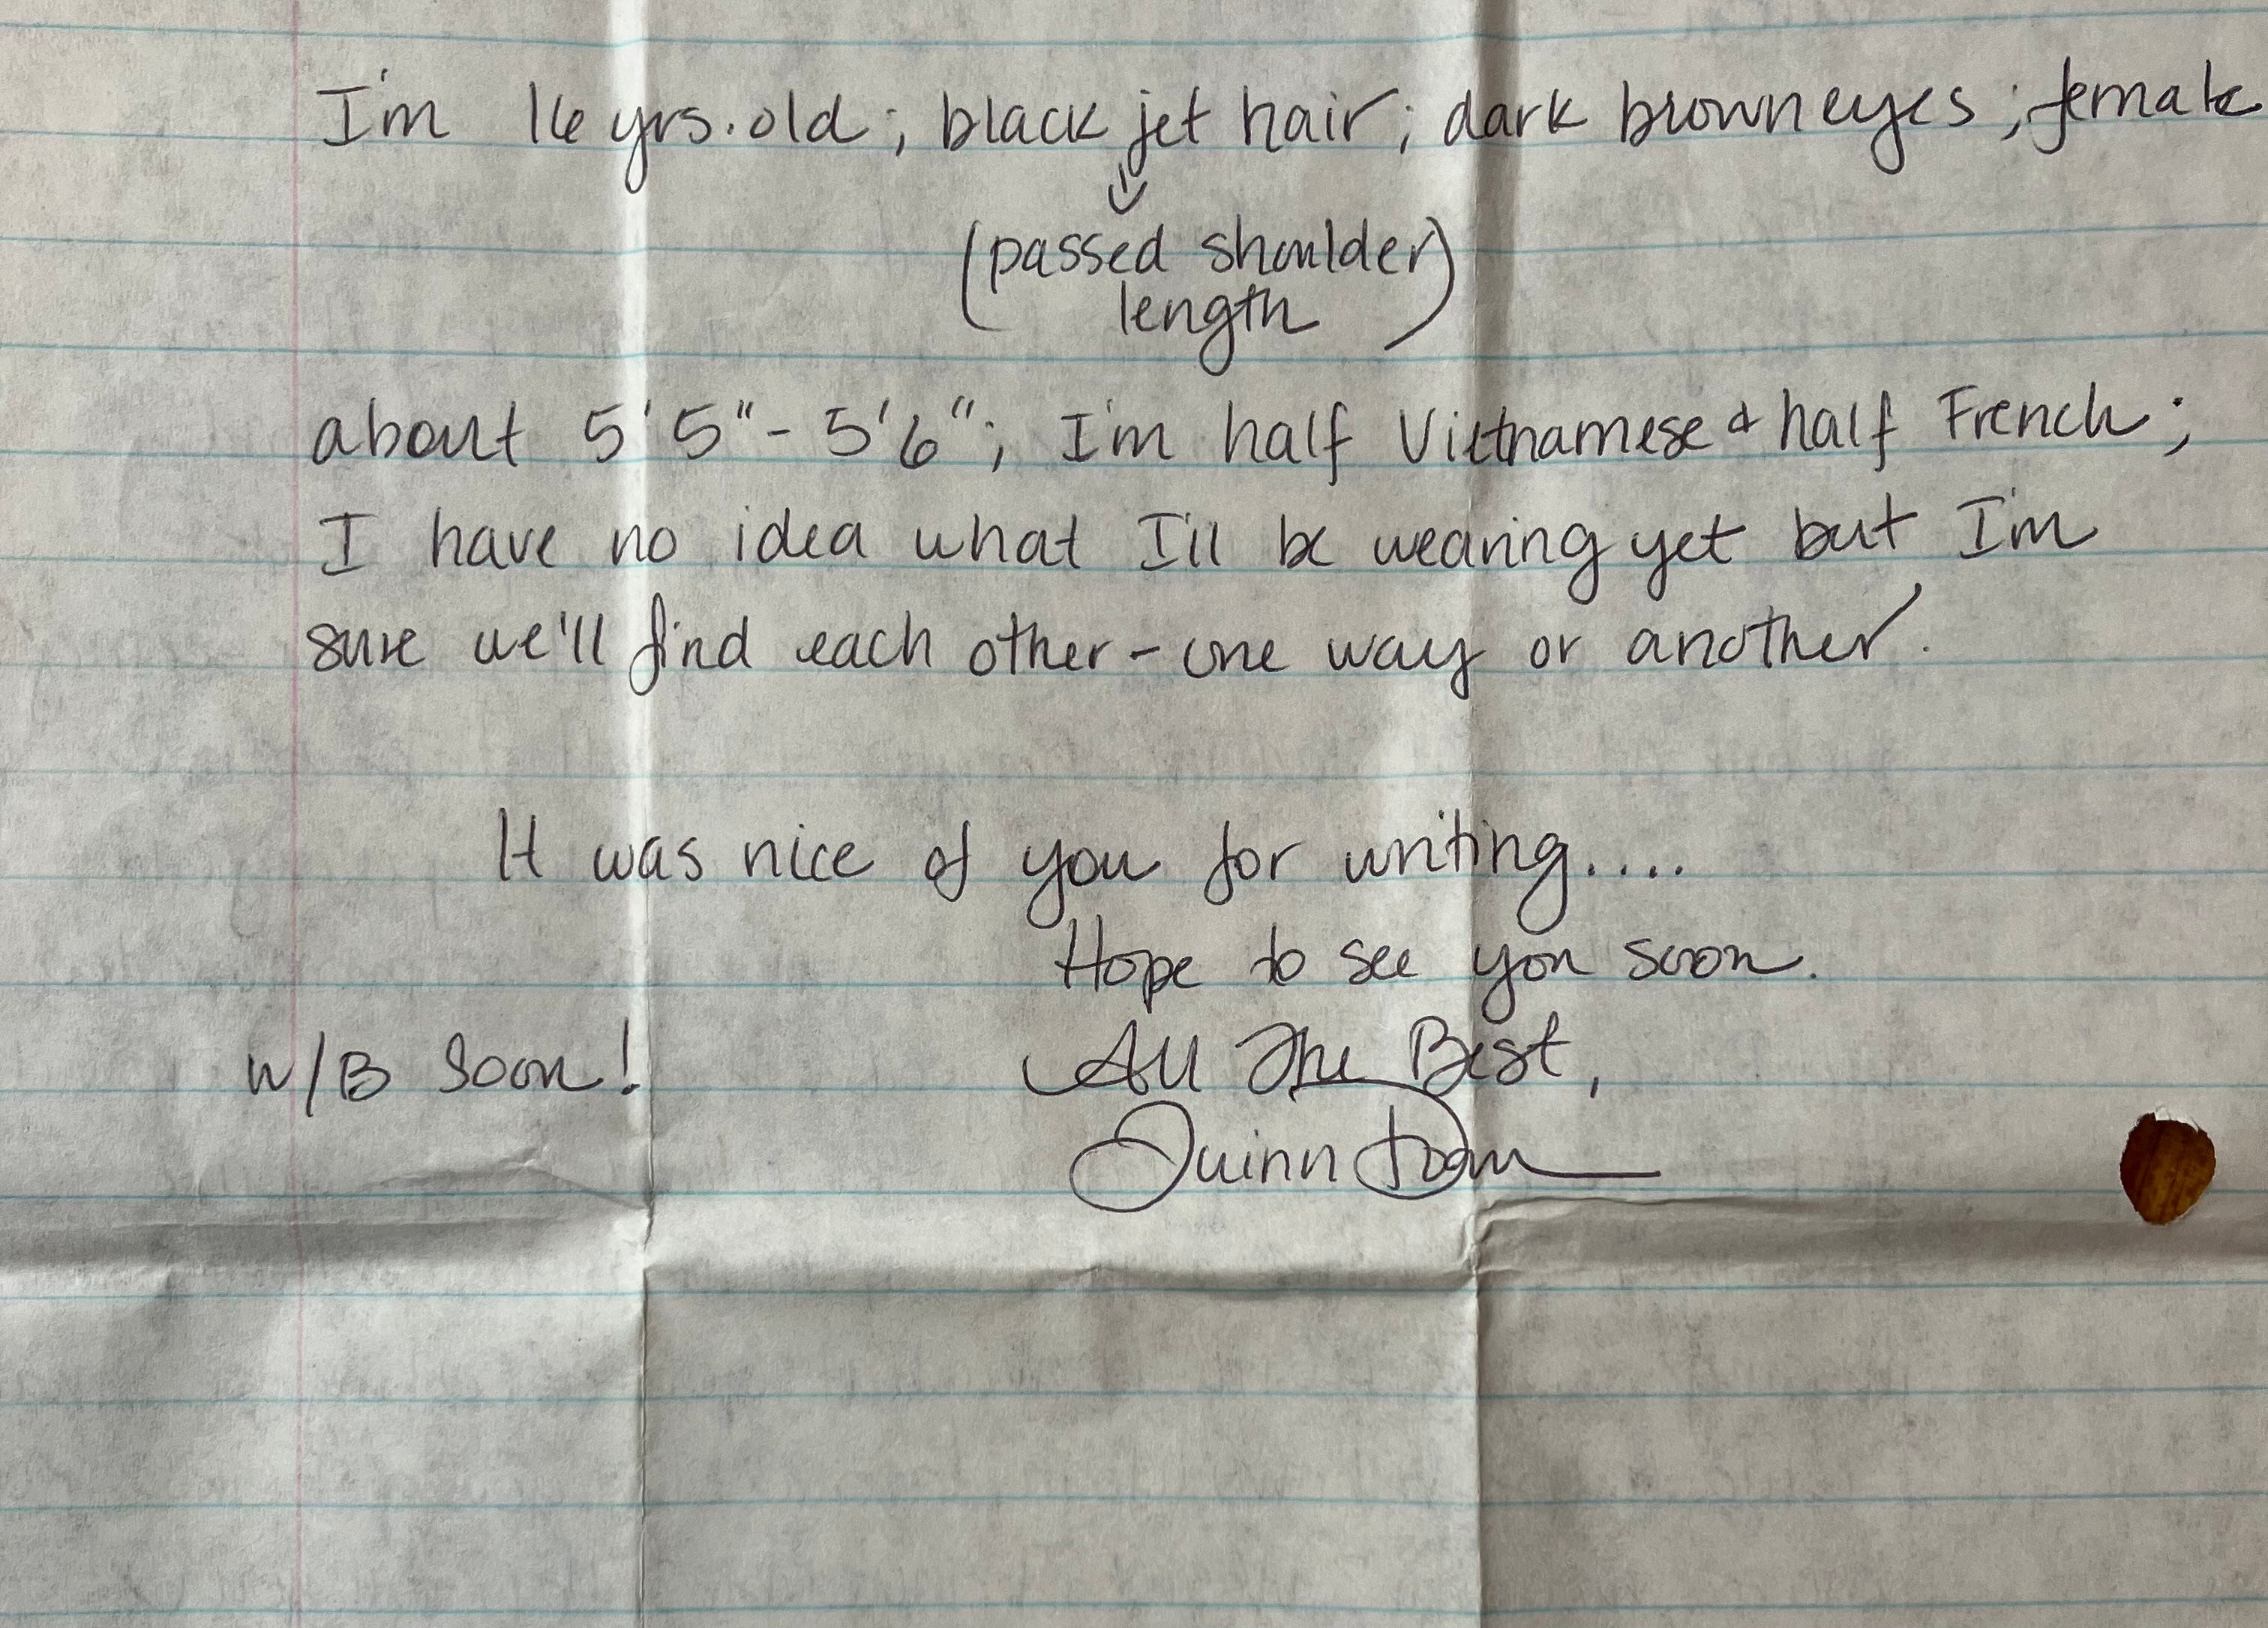 I'm 16 yrs. old; black jet hair; dark brown eyes; female
(passed shoulder
length)
about 5'5"-5'6"; I'm half Vietnamese & half French;
I have no idea what I'll be wearing yet but I'm
sure we'll find each other - one way or another.
It was nice of you for writing....
Hope to see you soon.
W/B Soon! All The Best,
Quinn